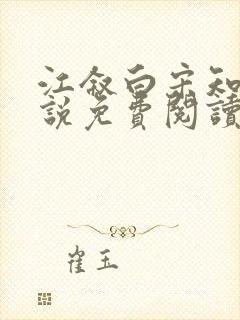 江叙白宋知
說免費閱讀
崔玉